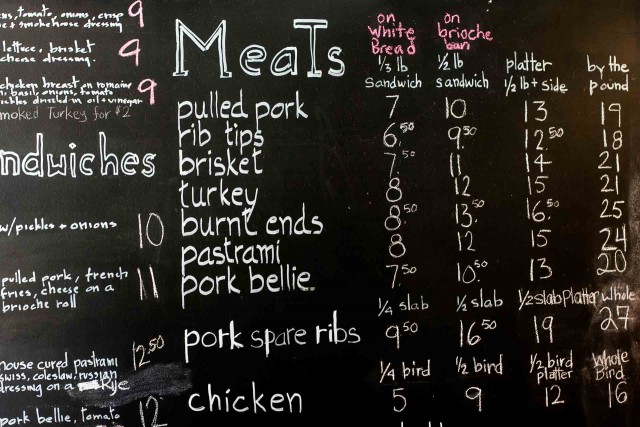 tomato, onions, crisp 9
+ smokehouse dressing
lettuce, brisket 9
dressing.
chicken breast on romaine 9
basil, onions, tomato
pickles drizzled in oil + vinegar
moked Turkey for $2
ndwiches
w/ pickles + onions 10
pulled pork, french 11
fries, cheese on a
brioche roll
12.50
house cured pastrami
swiss, coleslaw, russian
dressing on a Rye
pork belly, tomato 12
Meats
on White Bread 1/3 lb sandwich
on brioche bun 1/2 lb sandwich
platter 1/2 lb + side
by the pound
pulled pork 7 10 13 19
rib tips 6.50 9.50 12.50 18
brisket 7.50 11 14 21
turkey 8 12 15 21
burnt ends 8.50 13.50 16.50 25
pastrami 8 12 15 24
pork bellie 7.50 10.50 13 20
1/4 slab 1/2 slab 1/2 slab Platter whole
pork spare ribs 9.50 16.50 19 27
1/4 bird 1/2 bird 1/2 bird platter Whole Bird
chicken 5 9 12 16